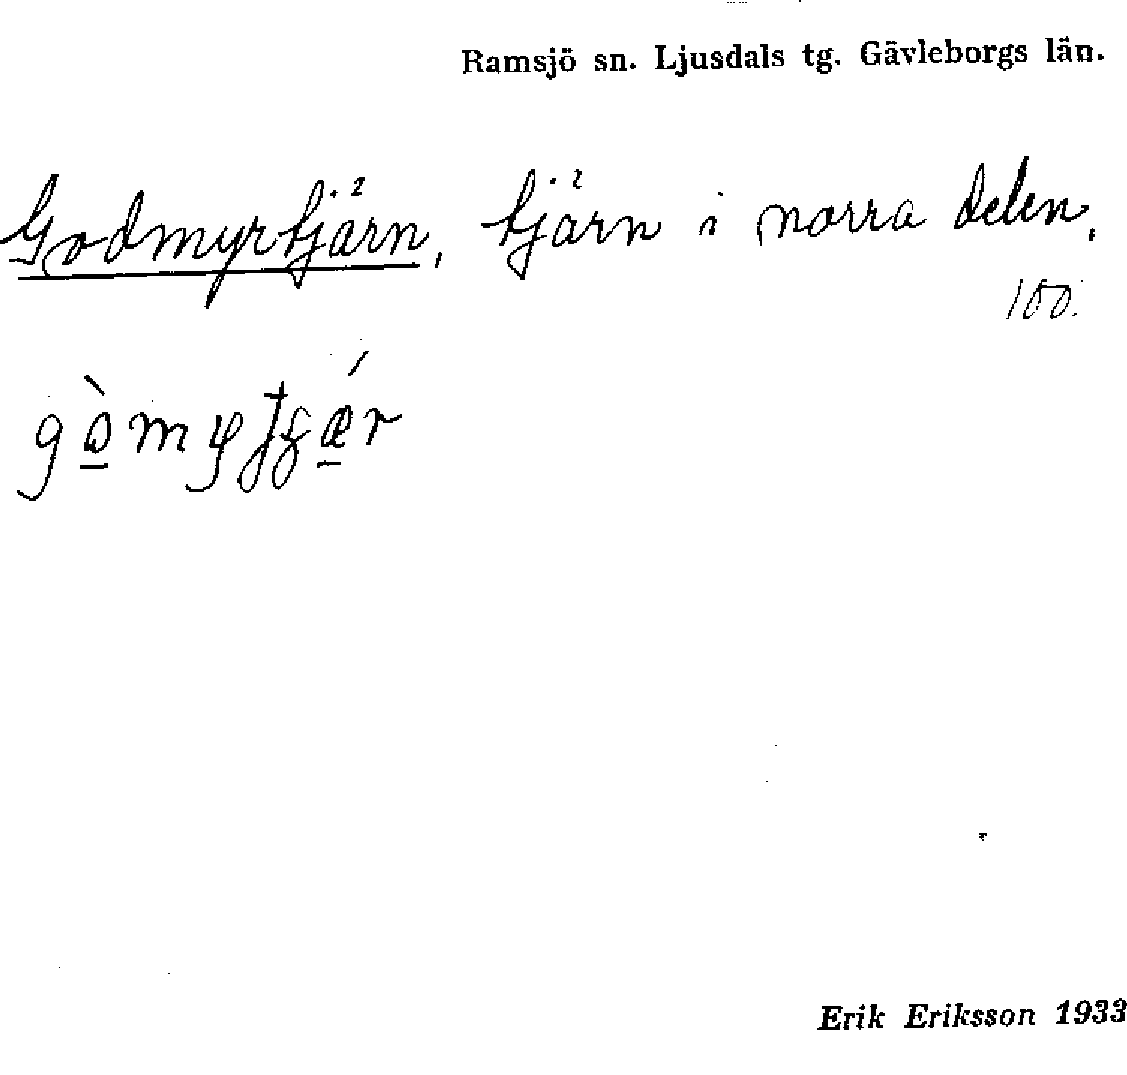 Ramsjö sn. Ljusdals tg. Gävleborgs län.
Godmyrtjärn, tjärn i norra delen,
100.
Erik Eriksson 1933